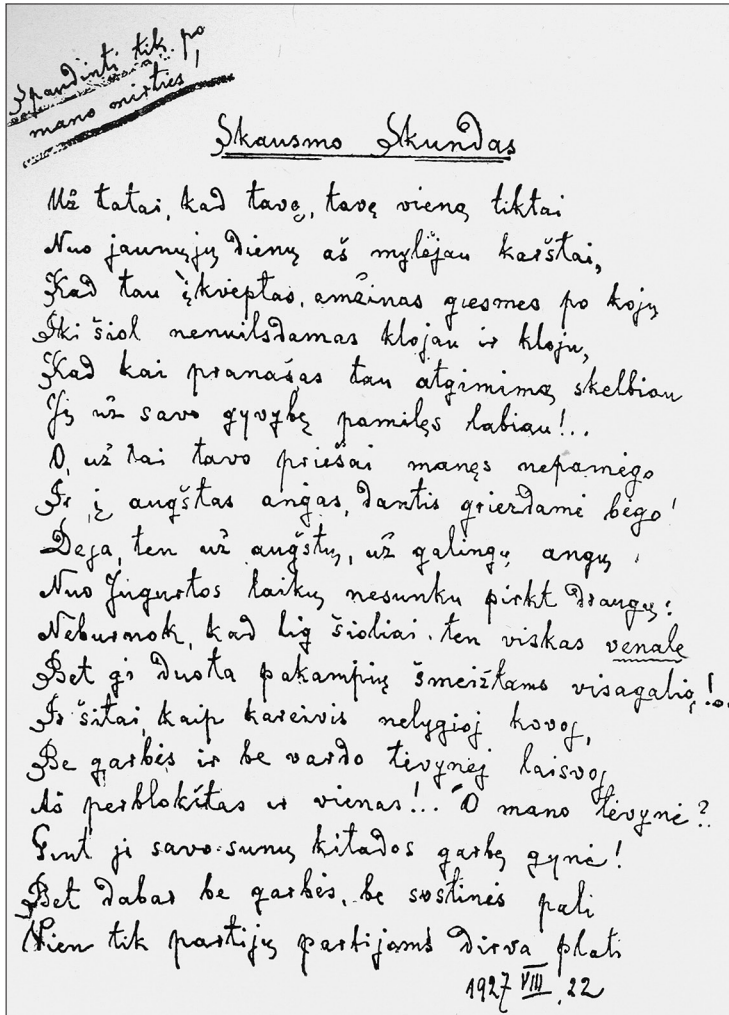 Spaudinti tik po
mano mirties!
Skausmo Skundas
Už tatai, kad tavę, tavę vieną tiktai
Nuo jaunųjų dienų aš mylėjau karštai,
Kad tau įkvėptas, amžinas giesmes po kojų
Iki šiol nenuilsdamas klojau ir kloju,
Kad kai pranašas tau atgimimą skelbiau
Jį už savo gyvybę pamilęs labiau!..
O, už tai tavo priešai manęs nepamėgo
Ir į augštas angas, dantis grieždami bėgo!
Deja, ten už augštų, už galingų angų
Nuo Jugurtos laikų nesunku pirkt draugų:
Neburnok, kad lig šioliai ten viskas venale
Bet gi duota pakampių šmeižtams visagalių!..
Ir šitai, kaip kareivis nelygioj kovoj,
Be garbės ir be vardo tėvynėj laisvoj
Aš perblokštas ir vienas!.. O mano tėvynė?
Gint ji savo sunų kitados garbę gynė!
Bet dabar be garbės, be sostinės pati
Vien tik partijų partijoms dirva plati
1927 VIII. 22